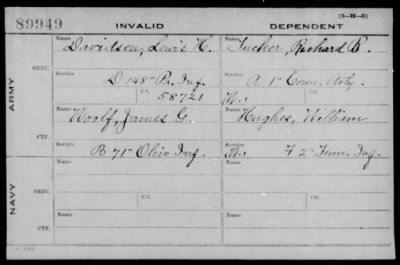 (3-111-3)
89949 INVALID DEPENDENT
Name Name
Davidson, Lewis H. Tucker, Richard B.
ORIG.
Service Service
D 148" Pa. Inf. A 1" Conn. Arty.
Ctf. 58721 W.
ARMY
Name Name
Woolf, James G. Hughes, William
CTF.
Service Service
B 71" Ohio Inf. W. F 2" Tenn. Inf.
Name Name
ORIG.
Service Ctf. Service Ctf.
NAVY
Name Name
CTF.
Service Service